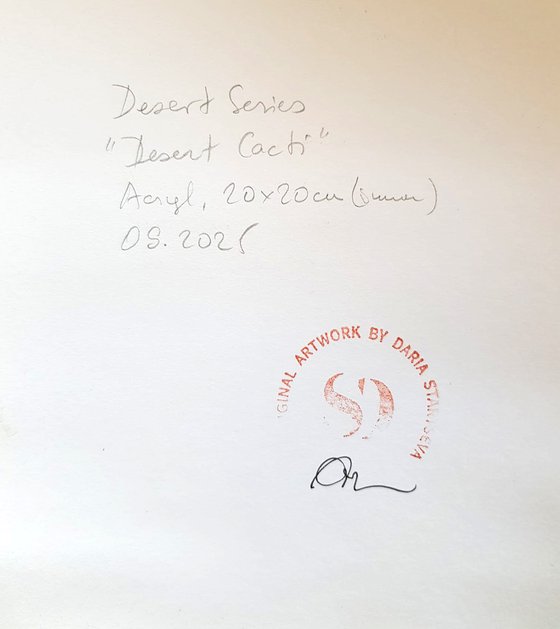 Desert Series
"Desert Cacti"
Acryl, 20x20cm (inner)
05.2025
GINAL ARTWORK BY DARIA STARTSEVA
SD